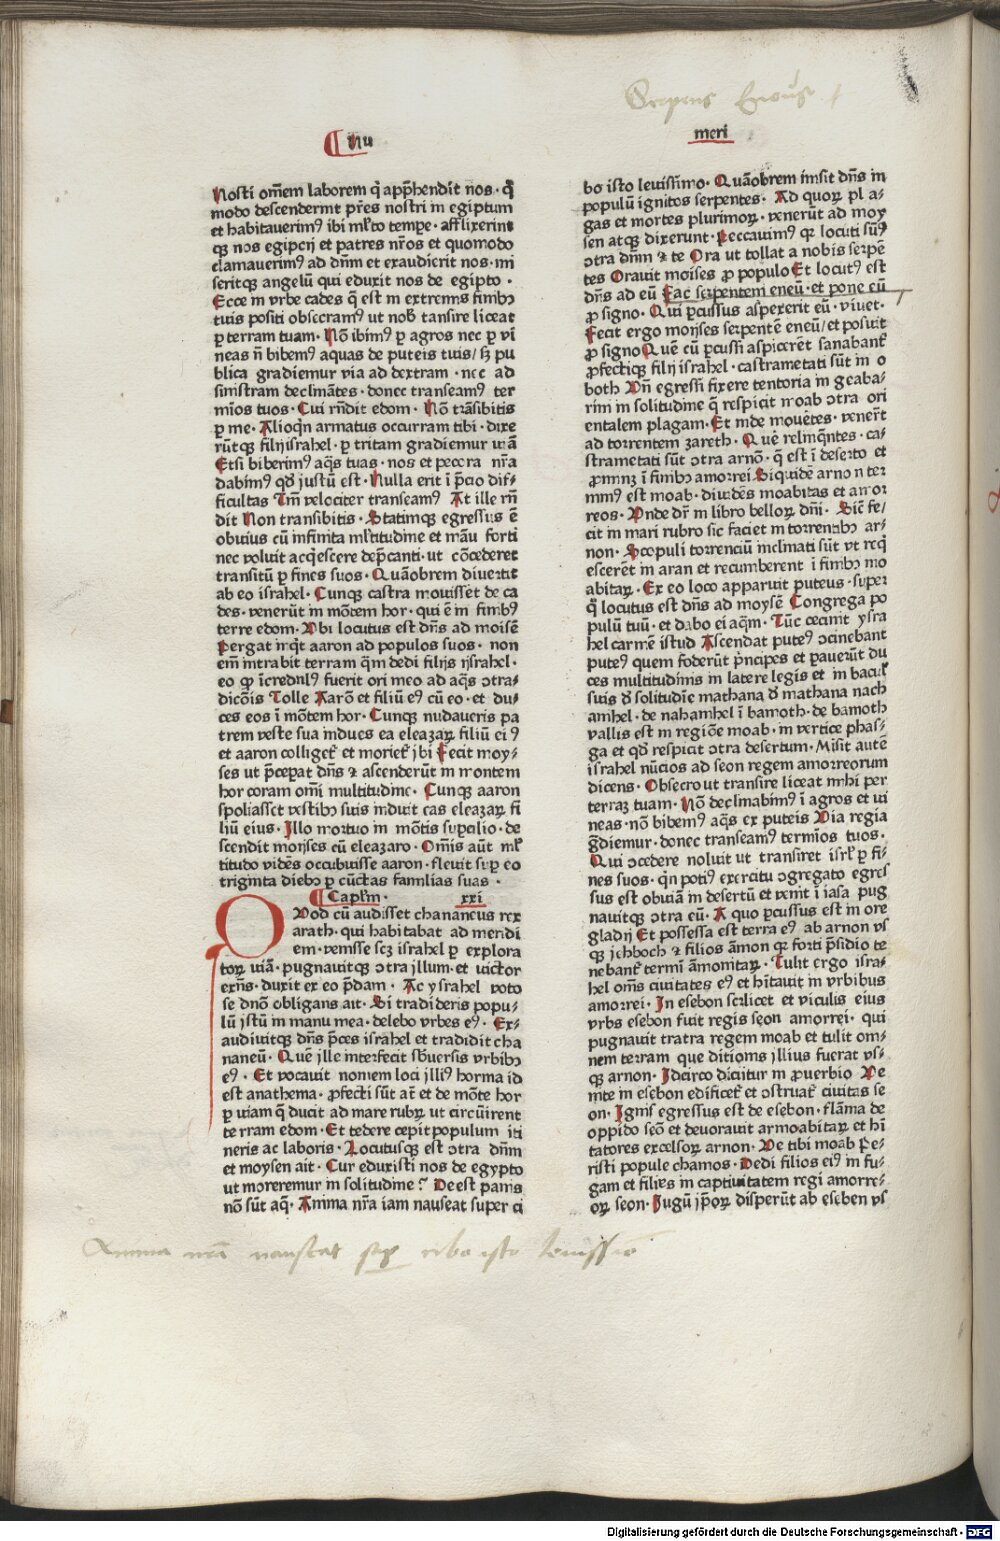 Serpens Eneus
Nu
meri
Nosti om̄em laborem q̇ app̄hendit nos · q̄
modo descenderint pr̄es nostri in egiptum
et habitauerimꝰ ibi ml̄to tempe · afflixerint
qꝫ nos egipcij et patres nr̄os et quomodo
clamauerimꝰ ad dn̄m et exaudierit nos · mi
seritqꝫ angelū qui eduxit nos de egipto ·
Ecce in vrbe cades q̄ est in extremis finibꝫ
tuis positi obsecramꝰ ut nob̄ tansire liceat
ꝑ terram tuam · Nō ibimꝰ ꝑ agros nec ꝑ vi
neas n̄ bibemꝰ aquas de puteis tuis / sꝫ pu
blica gradiemur via ad dextram · nec ad
sinistram declinātes · donec transeamꝰ ter
mīos tuos · Cui rn̄dit edom · Nō trāsibitis
ꝑ me · Alioqn̄ armatus occurram tibi · dixe
rūtqꝫ filij israhel · ꝑ tritam gradiemur uiā
Etsi biberimꝰ aq̄s tuas · nos et pecora nr̄a
dabimꝰ qd̄ justū est · Nulla erit ī p̄cio dif⸗
ficultas Tm̄ velociter transeamꝰ At ille rn̄
dit Non transibitis · Statimqꝫ egressus ē
obuius cū infinita ml̄titudine et māu forti
nec voluit acq̇escere dep̄canti · ut cōcederet
transitū ꝑ fines suos · Quāobrem diuertit
ab eo israhel · Cunqꝫ castra mouisset de ca
des · venerūt in mōtem hor · qui ē in finibꝰ
terre edom · Vbi locutus est dn̄s ad moisē
Pergat inq̇t aaron ad populos suos · non
em̄ intrabit terram q̄m dedi filijs ysrahel ·
eo ꝙ īcredulꝰ fuerit ori meo ad aq̄s ꝯtra⸗
dicōis Tolle Aarō et filiū eꝰ cū eo · et du⸗
ces eos ī mōtem hor · Cunqꝫ nudaueris pa
trem veste sua indues ea eleazaꝝ filiū ei ꝰ
et aaron colliget᷑ et moriet᷑ jbi Fecit moy⸗
ses ut p̄cepat dn̄s ⁊ ascenderūt in montem
hor coram om̄i multitudine · Cunqꝫ aaron
spoliasset vestibꝫ suis induit eas eleazaꝝ fi
liū eius · Illo mortuo in mōtis suꝑcilio · de
scendit moyses cū eleazaro · Om̄is aūt ml̄
titudo vidēs occubuisse aaron · fleuit suꝑ eo
triginta diebꝫ ꝑ cūctas familias suas ·
Capl̄m · xxi
QVod cū audisset chananeus rex
arath · qui habitabat ad meridi
em · venisse scꝫ israhel ꝑ explora
toꝝ uiā · pugnauitqꝫ ꝯtra jllum · et uictor
exn̄s · duxit ex eo p̄dam · Ac ysrahel voto
se dn̄o obligans ait · Si tradideris popu⸗
lū jstū in manu mea · delebo vrbes eꝰ · Ex⸗
audiuitqꝫ dn̄s p̄ces israhel et tradidit cha
naneū · Quē jlle interfecit sb̄uersis vrbibꝫ
eꝰ · Et vocauit nomen loci jlliꝰ horma id
est anathema · ꝓfecti sūt aūt et de mōte hor
ꝑ uiam q̄ ducit ad mare rubꝝ ut circūirent
te rram edom · Et tedere cepit populum iti
neris ac laboris · Locutusqꝫ est ꝯtra dn̄m
et moysen ait · Cur eduxisti nos de egypto
ut moreremur in solitudine? Deest panis
nō sūt aq̄ · Anima nr̄a iam nauseat super ci
bo isto leuissimo · Quāobrem imsit dn̄s in
populū ignitos serpentes · Ad quoꝝ pl a⸗
gas et mortes plurimoꝝ · venerūt ad moy
sen atqꝫ dixerunt · Peccauimꝰ qr locuti sūꝰ
ꝯtra dn̄m ⁊ te Ora ut tollat a nobis serpē
tes Orauit moises ꝓ populo Et locutꝰ est
dn̄s ad eū Fac serpentem eneū · et pone eū
ꝓ signo · Qui ꝑcussus aspexerit eū · viuet ·
Fecit ergo moyses serpentē eneū / et posuit
ꝓ signo Quē cū ꝑcussi aspicerēt sanabant᷑
ꝓfectiqꝫ filij israhel · castrametati sūt in o
both Vn̄ egressi fixere tentoria in geaba⸗
rim in solitudine q̄ respicit moab ꝯtra ori
entalem plagam · Et inde mouētes · venert̄
ad torrentem zareth · Quē relinqn̄tes · ca⸗
strametati sūt ꝯtra arnō · q̄ est ī deserto et
ꝓminꝫ ī finibꝫ amorrei Siquidē arno n ter
minꝰ est moab · diuidēs moabitas et amor
reos · Vnde dr̄ in libro belloꝝ dn̄i · Sic̄ fe/
cit in mari rubro sic faciet in torrentibꝫ ar⸗
non · Scopuli torrenciū inclinati sūt vt req̇
escerēt in aran et recumberent ī finibꝫ mo
abitaꝝ · Ex eo loco apparuit puteus · super
q̄ locutus est dn̄s ad moysē Congrega po
pulū tuū · et dabo ei aq̄m · Tūc cecinit ysra
hel carmē istud Ascendat puteꝰ ꝯcinebant
puteꝰ quem foderūt p̄ncipes et pauerūt du
ces multitudinis in latere legis et in bacul̄
suis d̄ solitudīe mathana d̄ mathana nach
amhel · de nahamhel ī bamoth · de bamoth
vallis est in regiōe moab · in vertice phas⸗
ga et qd̄ respicit ꝯtra desertum · Misit autē
israhel nūcios ad seon regem amorreorum
dicens · Obsecro ut transire liceat mihi per
terraꝫ tuam · Nō declinabimꝰ ī agros et ui
neas · nō bibemꝰ aq̄s ex puteis Via regia
ḡdiemur · donec transeamꝰ termīos tuos ·
Qui ꝯcedere noluit ut transiret isrl̄ ꝑ fi⸗
nes suos · qn̄ potiꝰ exercitu ꝯgregato egres
sus est obuiā in desertū et venit ī iasa pug
nauitqꝫ ꝯtra eū · A quo ꝑcussus est in ore
gladij Et possessa est terra eꝰ ab arnon vs
qꝫ jchboch ⁊ filios āmon qr forti p̄sidio te
nebant᷑ termi āmonitaꝝ · Tulit ergo isra⸗
hel om̄s ciuitates eꝰ et hītauit in vrbibus
amorrei · In esebon scilicet et viculis eius
vrbs esebon fuit regis seon amorrei · qui
pugnauit tratra regem moab et tulit om⸗
nem terram que ditionis jllius fuerat vs⸗
qꝫ arnon · Idcirco dicitur in ꝓuerbio Ve
nite in esebon edificet᷑ et ꝯstruat᷑ ciuitas se
on · Ignis egressus est de esebon · flāma de
oppido seō et deuorauit armoabitaꝝ et hī
tatores excelsoꝝ arnon · Ve tibi moab Pe⸗
risti popule chamos · Dedi filios eiꝰ in fu⸗
gam et filias in captiuitatem regi amorre⸗
oꝝ seon · Jugū jp̄oꝝ disperūt ab esebon vs
Anima nr̄a nauseat sup cibo isto leuissīo
Digitalisierung gefördert durch die Deutsche Forschungsgemeinschaft - DFG